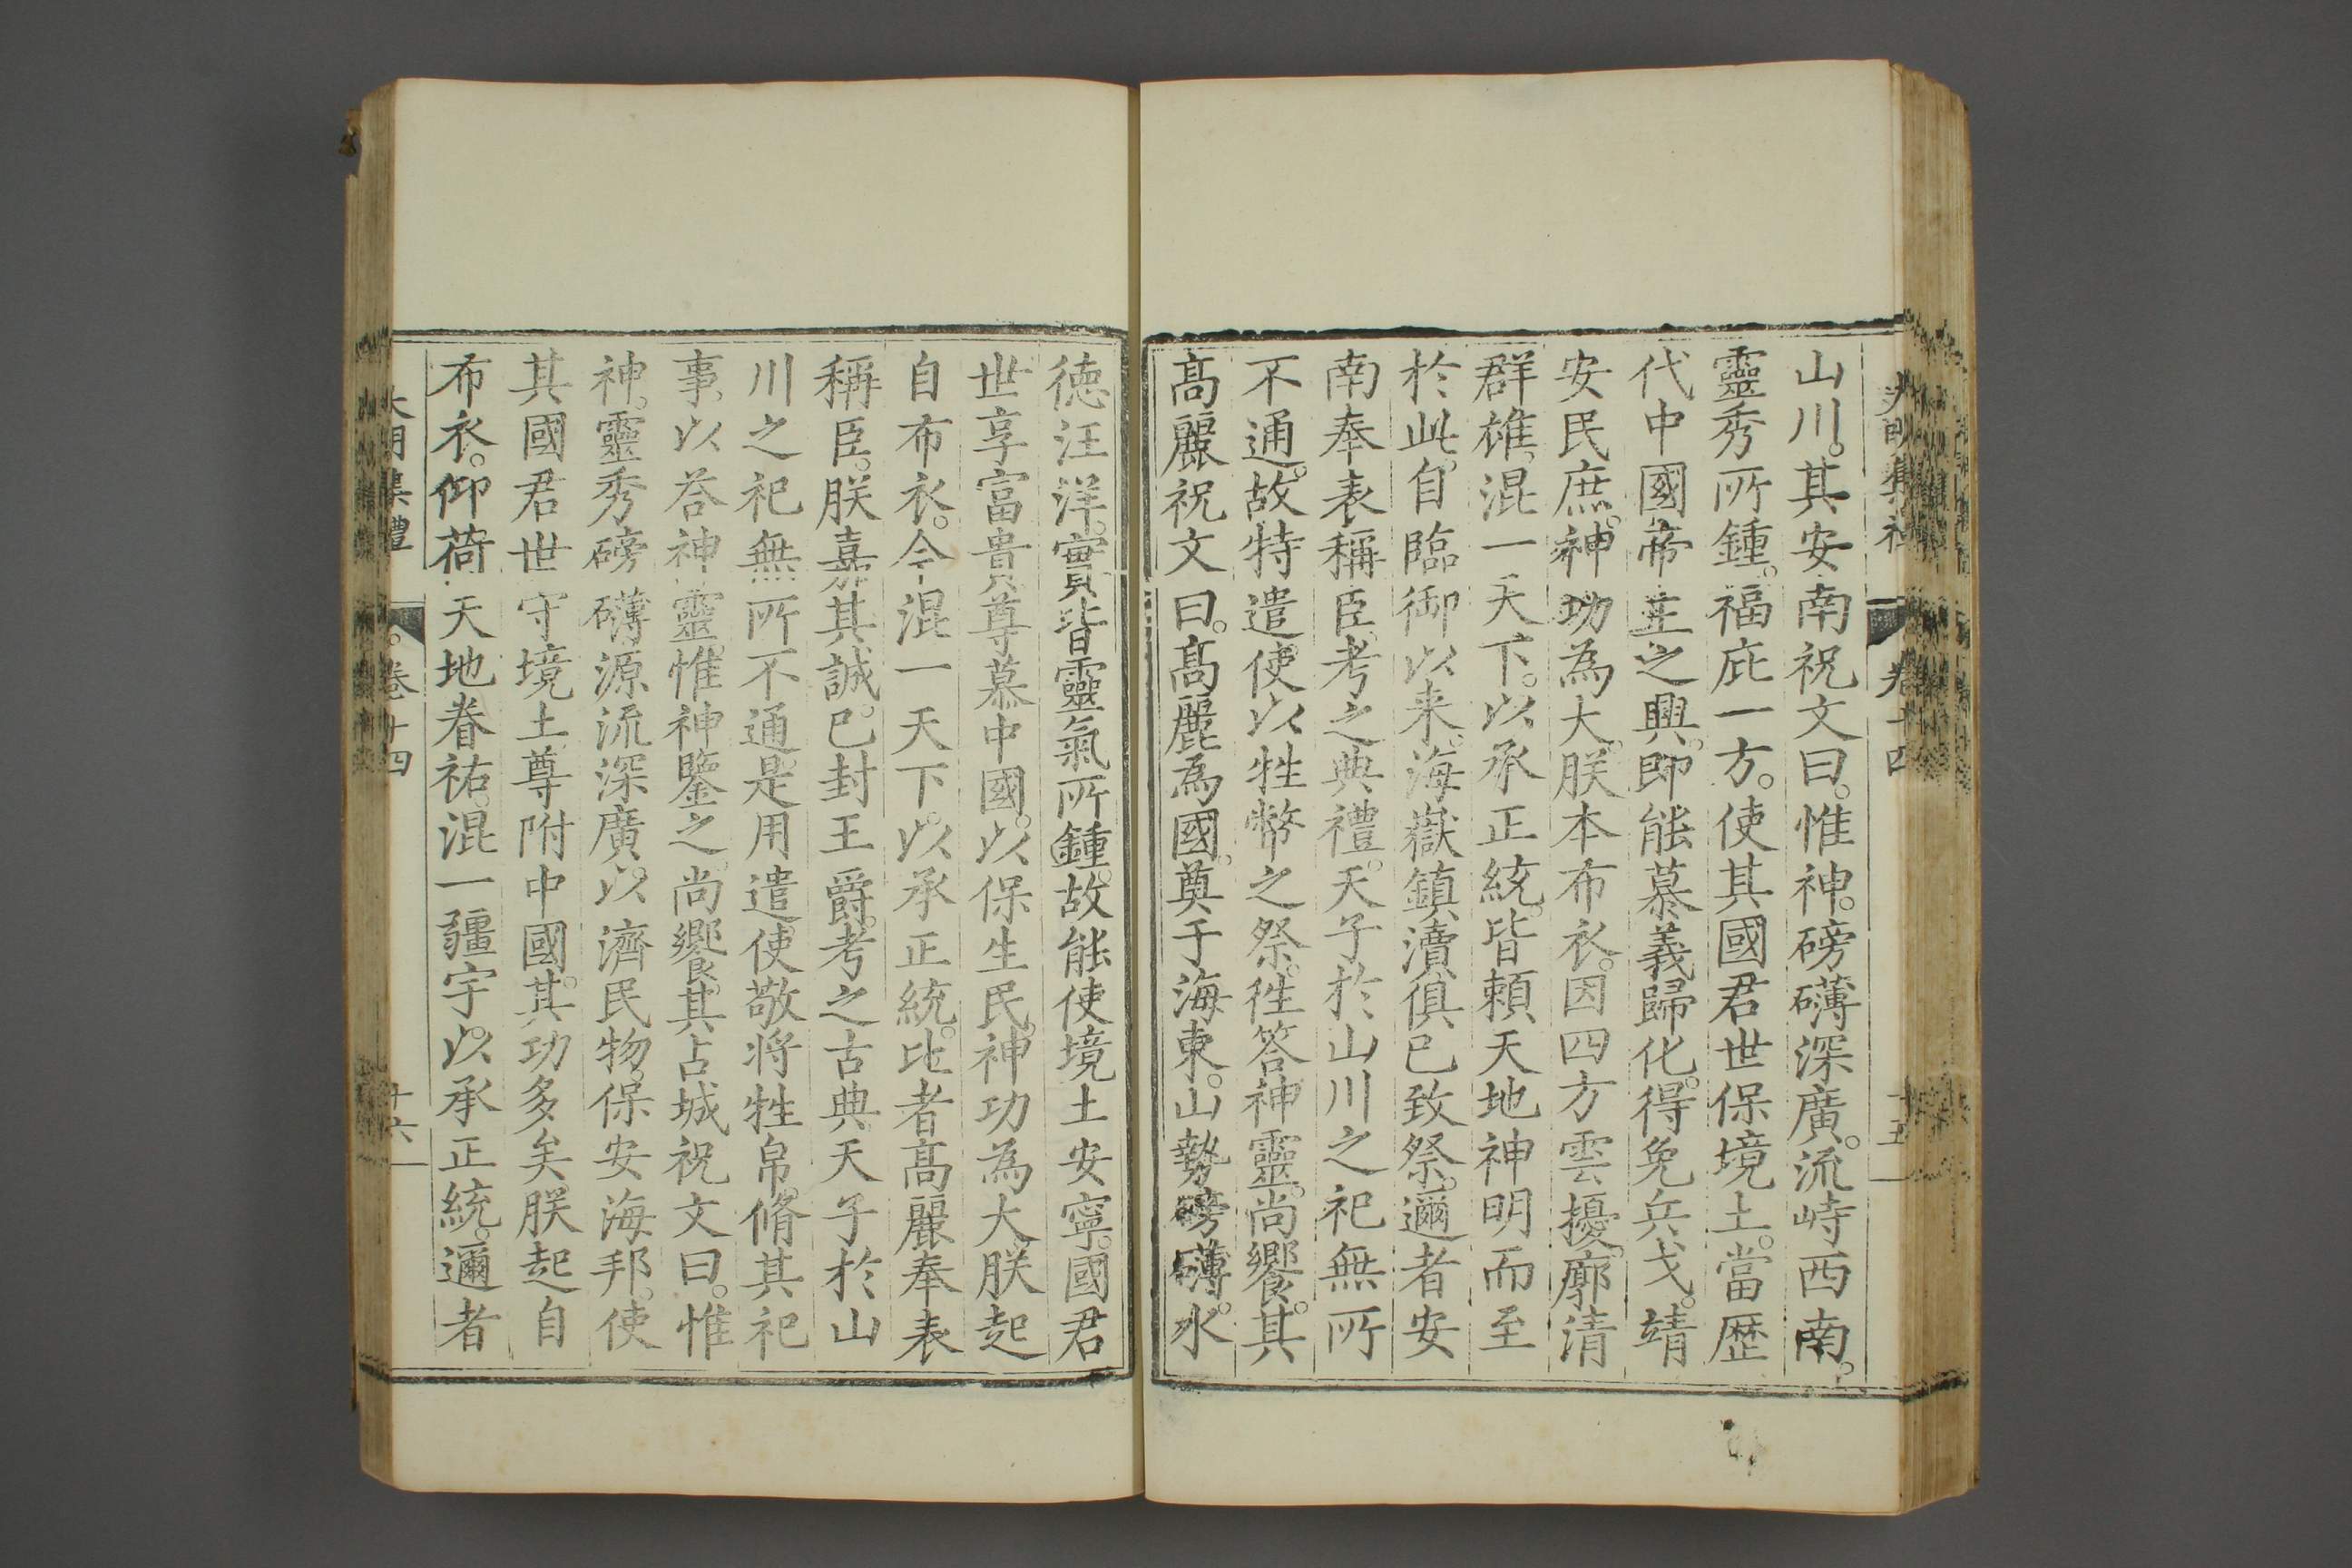 大明集禮 卷十四 十五
山川。其安南祝文曰。惟神。磅礴深廣。流峙西南。
靈秀所鍾。福庇一方。使其國君世保境土。當歴
代中國帝主之興。即能慕義歸化。得免兵戈。靖
安民庶。神功為大。朕本布衣。因四方雲擾。廓清
群雄。混一天下。以承正統。皆頼天地神明而至
於此。自臨御以来。海嶽鎮瀆俱已致祭。邇者安
南奉表稱臣。考之典禮。天子於山川之祀無所
不通。故特遣使以牲幣之祭。徃答神靈。尚饗。其
髙麗祝文曰。髙麗為國。奠于海東。山勢磅礴。水
徳汪洋。實皆靈氣所鍾。故能使境土安寧。國君
世享富貴。尊慕中國。以保生民。神功為大。朕起
自布衣。今混一天下。以承正統。比者髙麗奉表
稱臣。朕嘉其誠。已封王爵。考之古典天子於山
川之祀無所不通。是用遣使敬将牲帛。脩其祀
事。以荅神靈。惟神鑒之。尚饗。其占城祝文曰。惟
神。靈秀磅礴。源流深廣。以濟民物。保安海邦。使
其國君世守境土。尊附中國。其功多矣。朕起自
布衣。仰荷天地眷祐。混一疆宇。以承正統。邇者
大明集禮 卷十四 十六